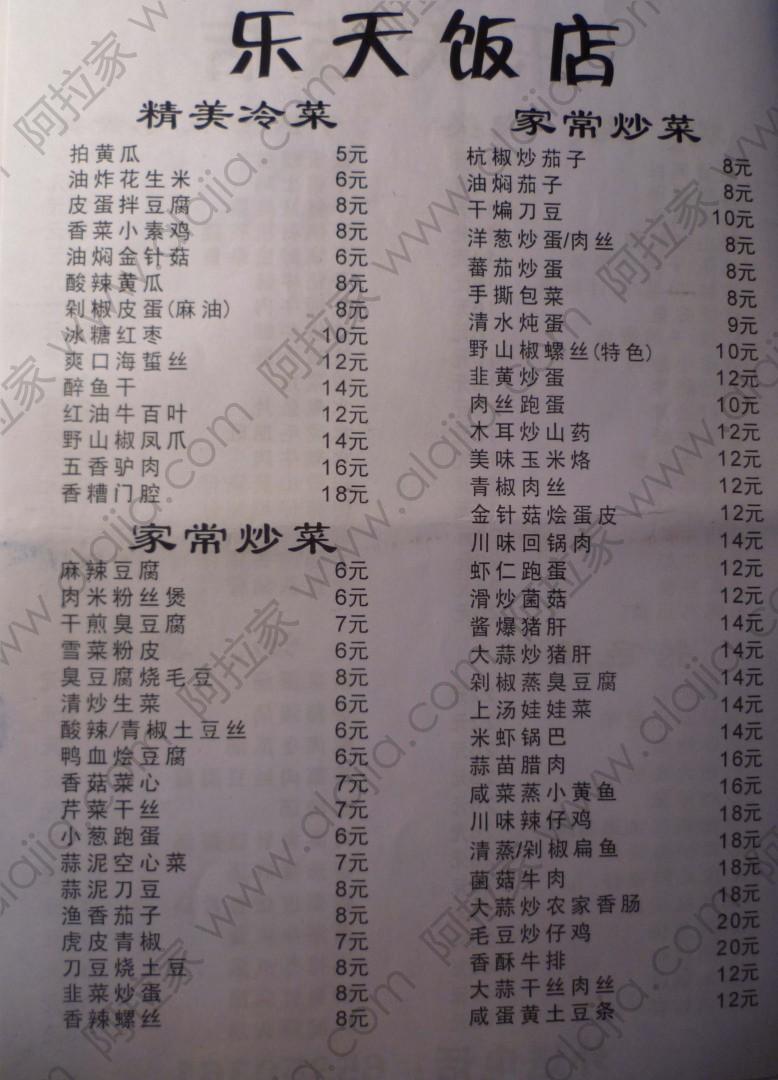 乐天饭店
精美冷菜
拍黄瓜 5元
油炸花生米 6元
皮蛋拌豆腐 8元
香菜小素鸡 8元
油焖金针菇 6元
酸辣黄瓜 8元
剁椒皮蛋(麻油) 8元
冰糖红枣 10元
爽口海蜇丝 12元
醉鱼干 14元
红油牛百叶 12元
野山椒凤爪 14元
五香驴肉 16元
香糟门腔 18元
家常炒菜
麻辣豆腐 6元
肉米粉丝煲 6元
干煎臭豆腐 7元
雪菜粉皮 6元
臭豆腐烧毛豆 8元
清炒生菜 6元
酸辣/青椒土豆丝 6元
鸭血烩豆腐 6元
香菇菜心 7元
芹菜干丝 7元
小葱跑蛋 6元
蒜泥空心菜 7元
蒜泥刀豆 8元
渔香茄子 8元
虎皮青椒 7元
刀豆烧土豆 8元
韭菜炒蛋 8元
香辣螺丝 8元
家常炒菜
杭椒炒茄子 8元
油焖茄子 8元
干煸刀豆 10元
洋葱炒蛋/肉丝 8元
蕃茄炒蛋 8元
手撕包菜 8元
清水炖蛋 9元
野山椒螺丝(特色) 10元
韭黄炒蛋 12元
肉丝跑蛋 10元
木耳炒山药 12元
美味玉米烙 12元
青椒肉丝 12元
金针菇烩蛋皮 12元
川味回锅肉 14元
虾仁跑蛋 12元
滑炒菌菇 12元
酱爆猪肝 14元
大蒜炒猪肝 14元
剁椒蒸臭豆腐 14元
上汤娃娃菜 14元
米虾锅巴 14元
蒜苗腊肉 16元
咸菜蒸小黄鱼 16元
川味辣仔鸡 18元
清蒸/剁椒扁鱼 18元
菌菇牛肉 18元
大蒜炒农家香肠 18元
毛豆炒仔鸡 20元
香酥牛排 20元
大蒜干丝肉丝 12元
咸蛋黄土豆条 12元
阿拉家 www.alajia.com